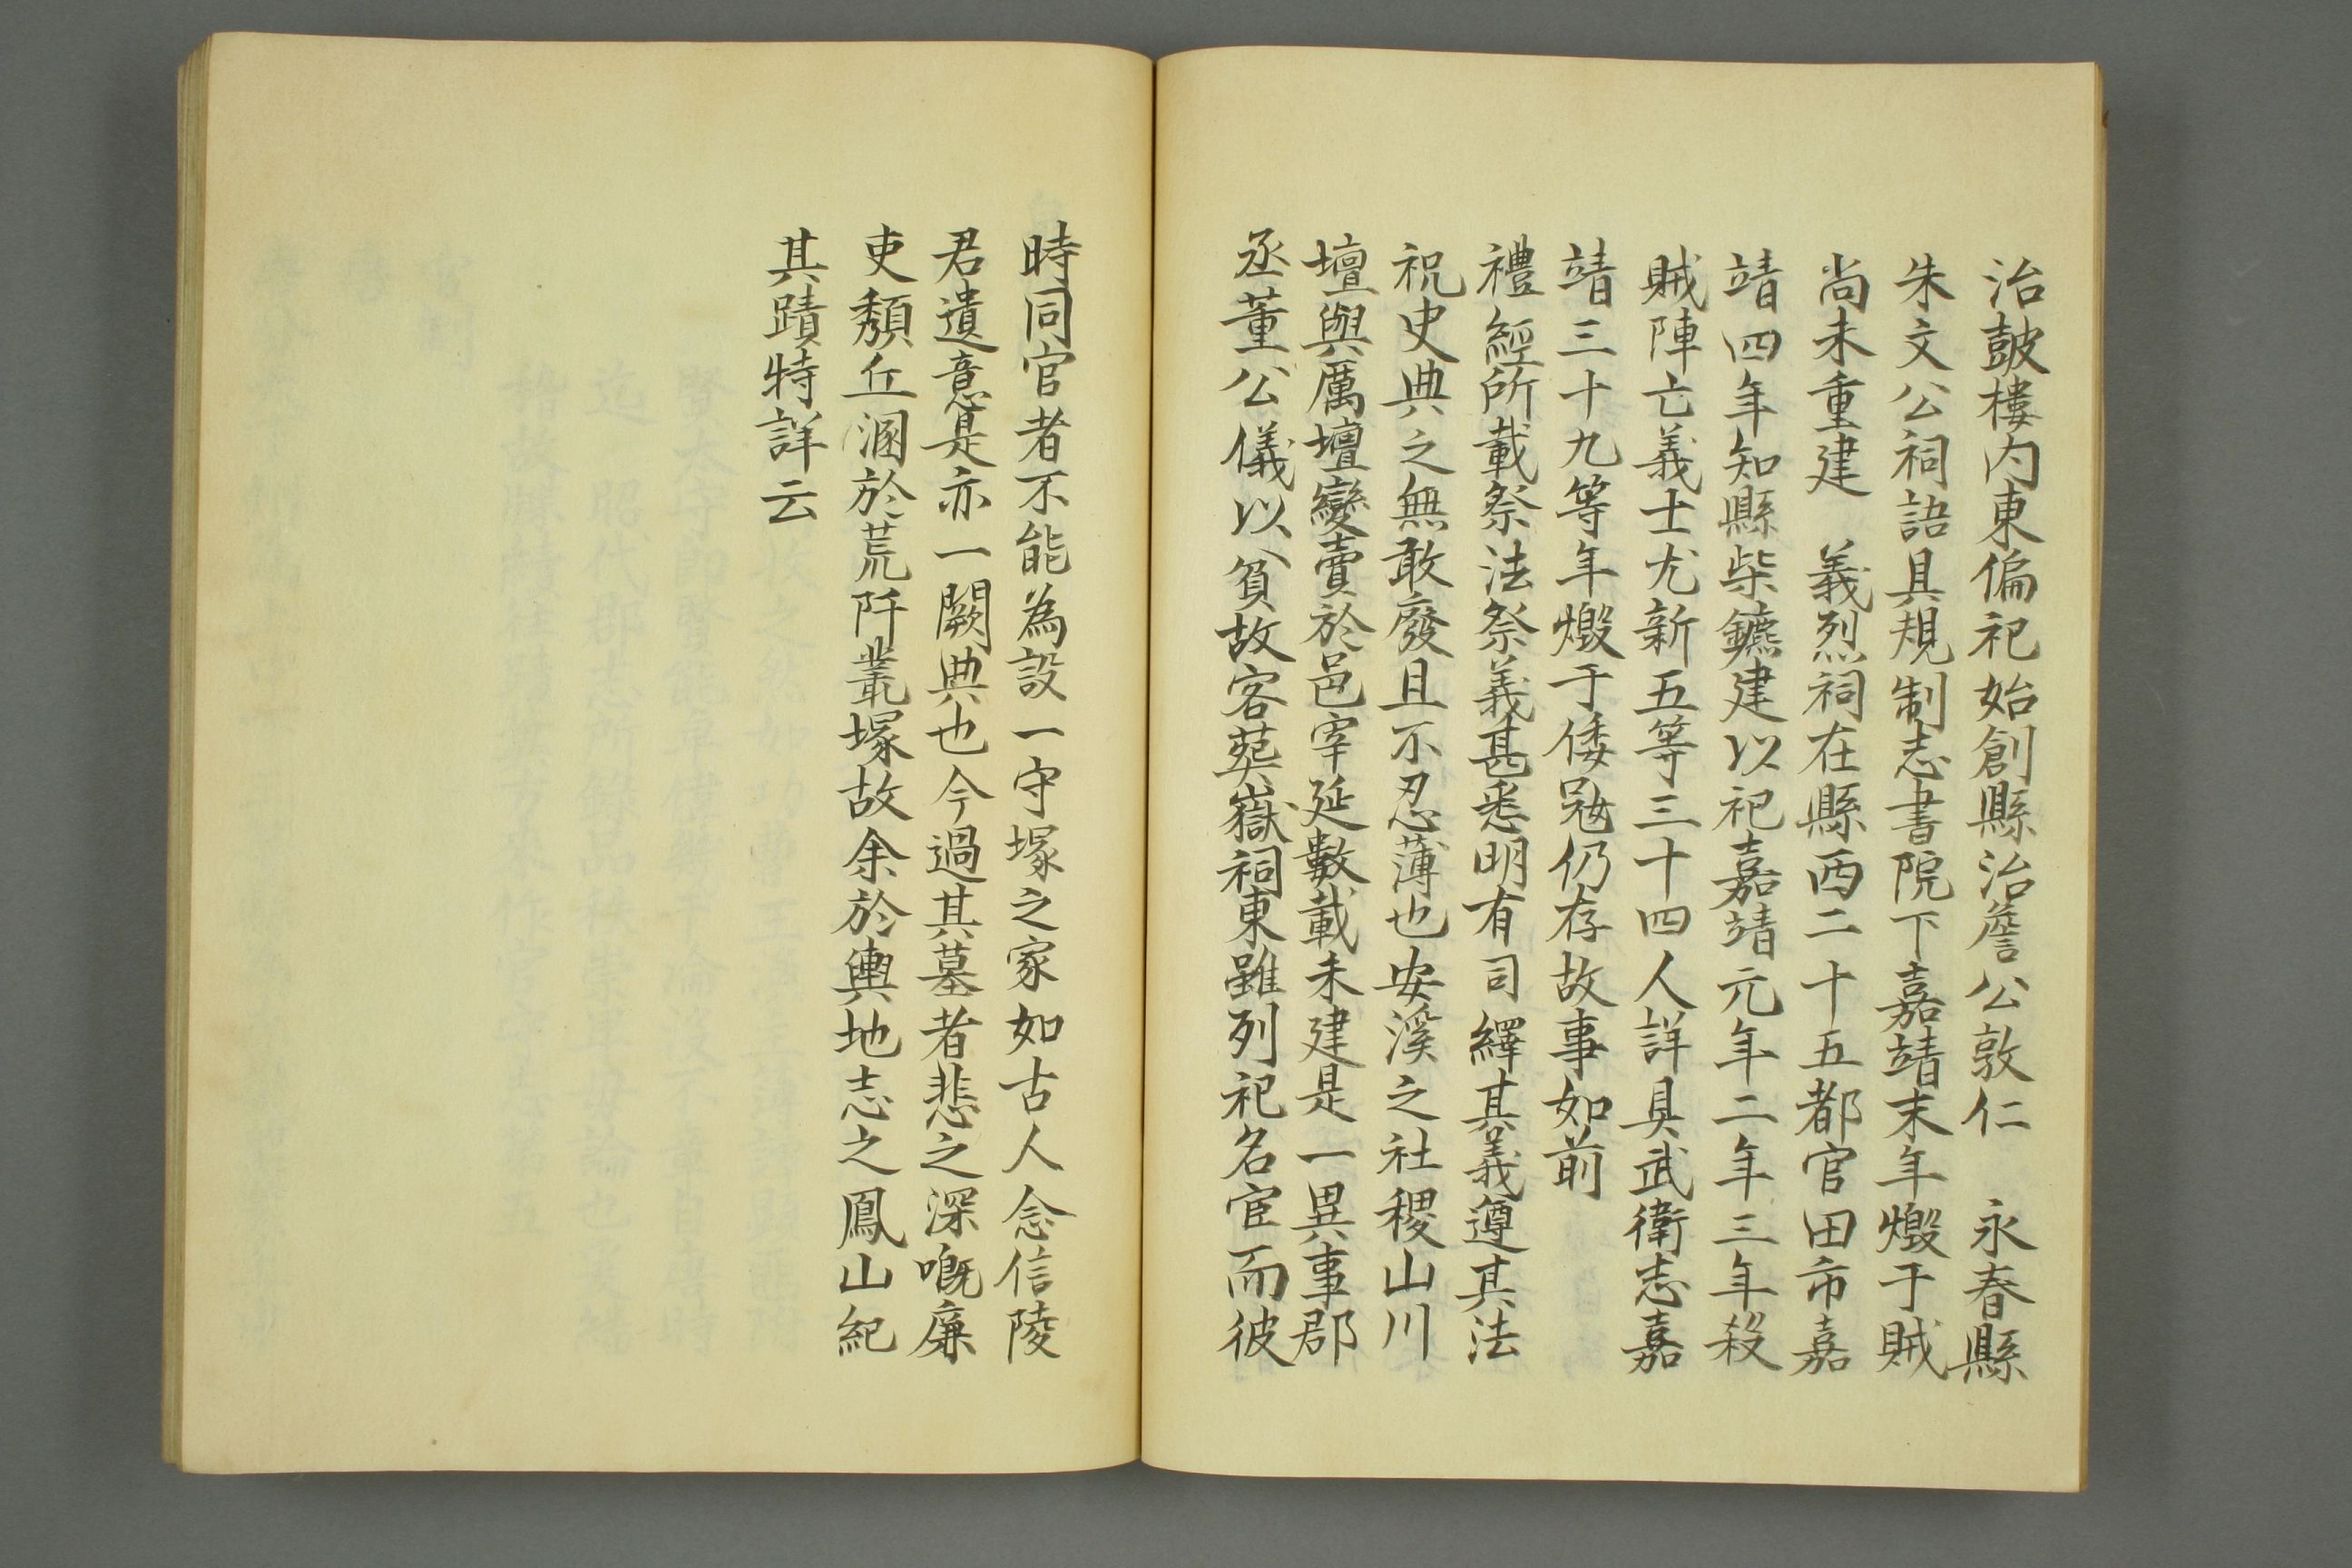 治皷樓内東偏祀始創縣治詹公敦仁　永春縣
朱文公祠語具規制志書院下嘉靖末年燬于賊
尚未重建　義烈祠在縣西二十五都官田市嘉
靖四年知縣柴鑣建以祀嘉靖元年二年三年殺
賊陣亡義士尤新五等三十四人詳具武衛志嘉
靖三十九等年燬于倭冦仍存故事如前
禮經所載祭法祭義甚悉明有司繹其義遵其法
祝史典之無敢廢且不忍薄也安溪之社稷山川
壇與厲壇變賣於邑宰延數載未建是一異事郡
丞董公儀以貧故客葬嶽祠東雖列祀名宦而彼
時同官者不能為設一守塚之家如古人念信陵
君遺意是亦一闕典也今過其墓者悲之深嘅廉
吏頽丘溷於荒阡叢塚故余於輿地志之鳳山紀
其蹟特詳云